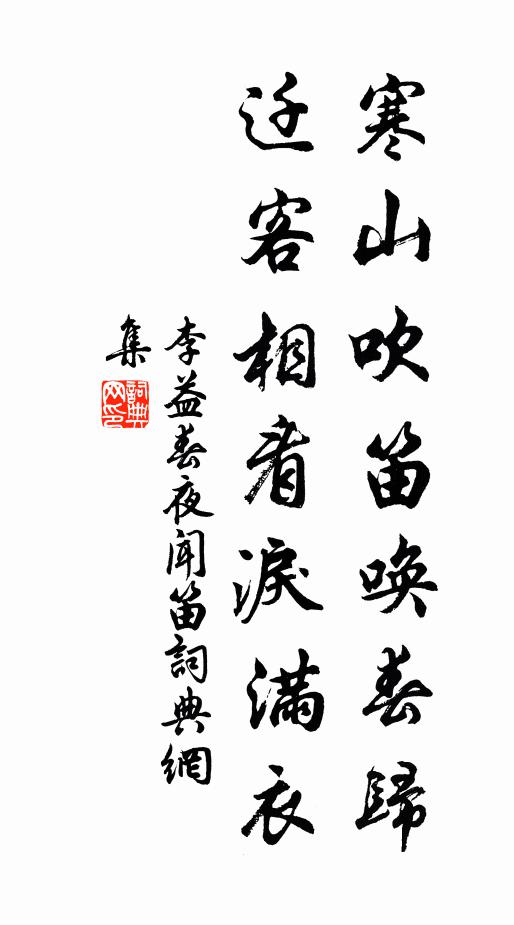 寒山吹笛喚春歸
迁客相看淚滿衣
李益春夜聞笛詞典網
集
詞典
网印